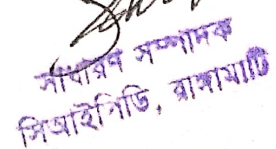 সাধারণ সম্পাদক
সিআইপিডি, রাঙ্গামাটি